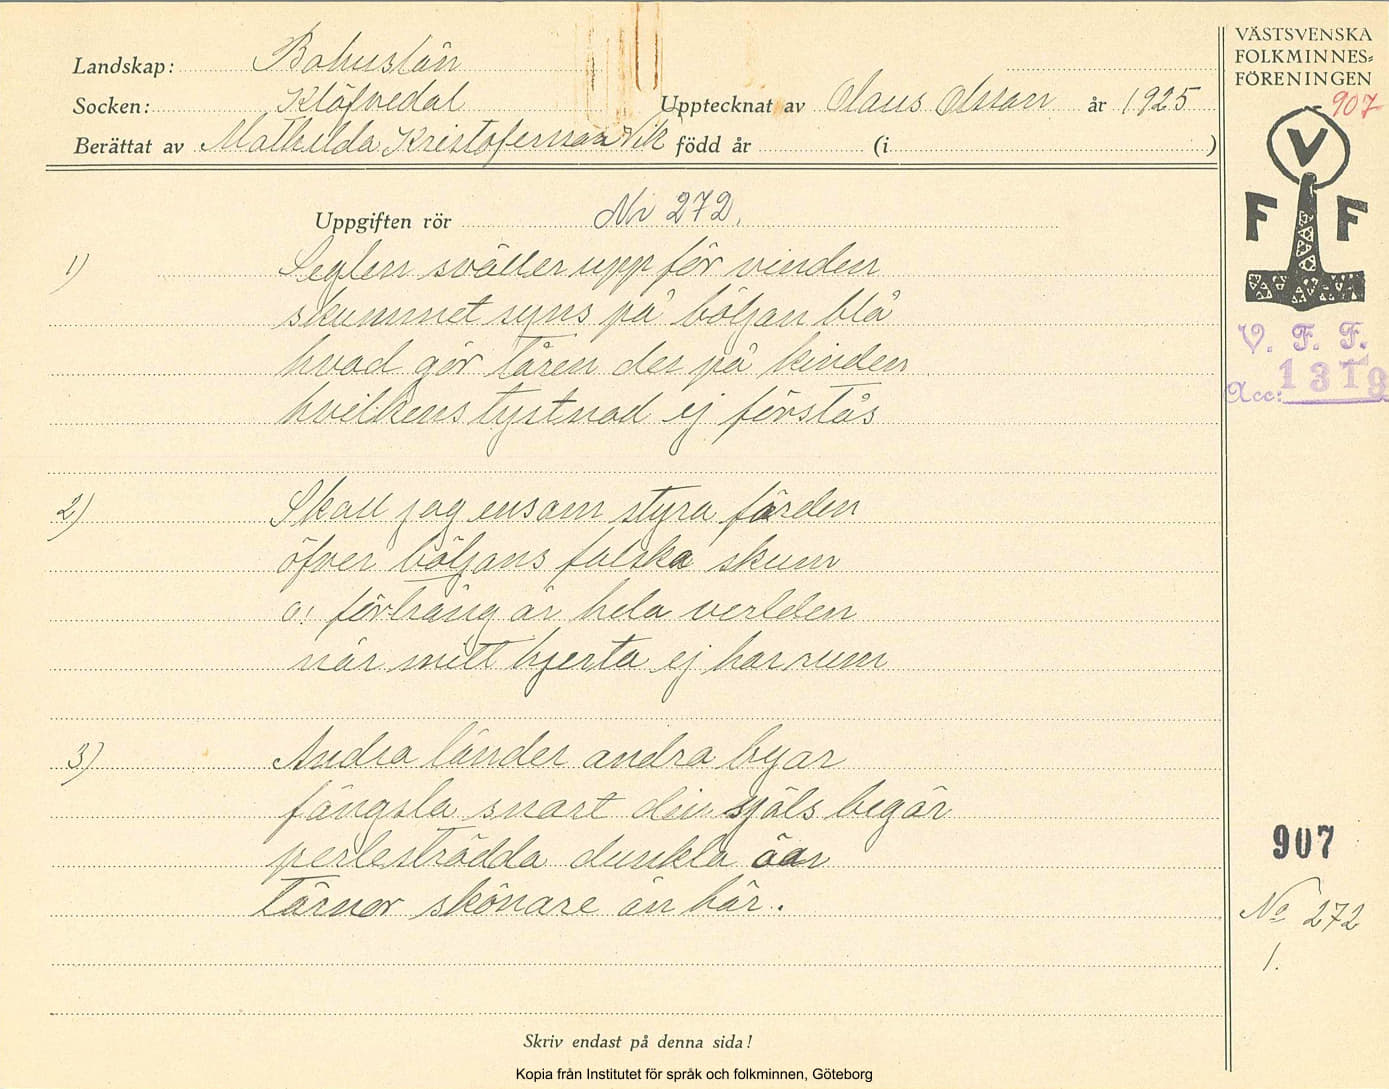 Landskap: Bohuslän
Socken: Klöfvedal Upptecknat av Olaus Olsson år 1925
Berättat av Mathilda Kristoferson Vik född år (i )
Uppgiften rör Nr 272.
1) Seglen sväller upp för vinden
skummet syns på böljan blå
hvad gör tåren der på kinden
hvilkens tystnad ej förstås
2) Skall jag ensam styra färden
öfver böljans falska skum
o! förtrång är hela verlden
när mitt hjerta ej har rum
3) Andra länder andra byar
fängsla snart din själs begär
perleströdda dunkla öar
tärnor skönare än här.
Skriv endast på denna sida!
Kopia från Institutet för språk och folkminnen, Göteborg
VÄSTSVENSKA
FOLKMINNES-
FÖRENINGEN
907
V
F F
V. F. F.
Acc: 1319
907
No 272
1.